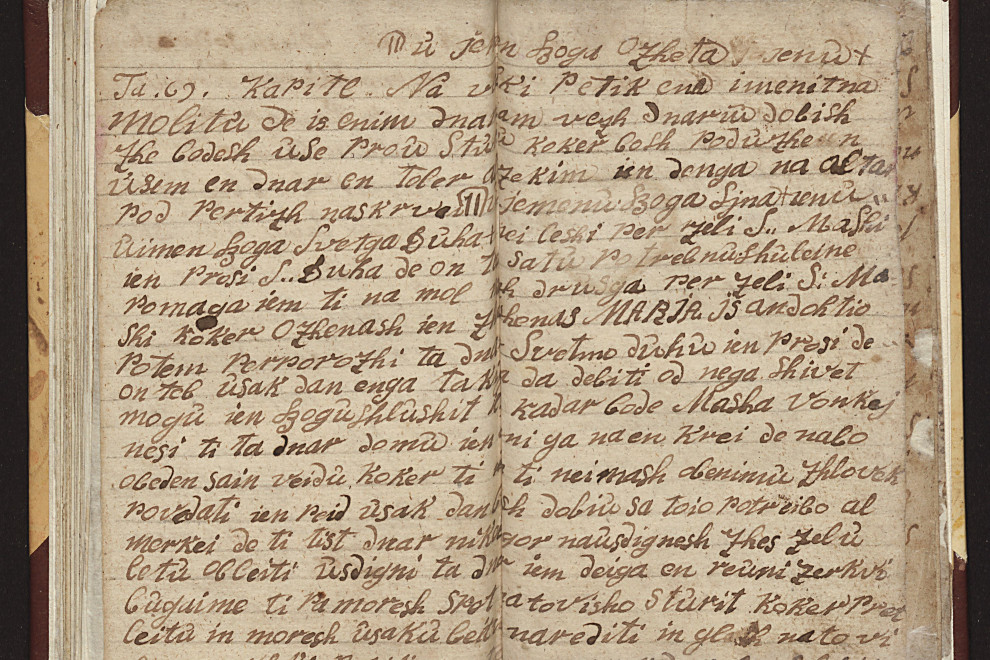 U jemn Boga Ozheta
Ta .69. Kapitl Na vski Petik ena imenitna
Molitu de is enim dnarjam vezh dnaru dobish
zhe bodesh use Prou Stu koker bosh Poduzhen
usem en dnar en toler zekim ien denga na altar
Pod Pertizh naskrvei U jemenu Boga Sjna + ienu
uimen Boga Svetga Duha + lei leshi Per zeli S.. Mashi
ien Prosi S.. Duha de on satu Potrebnu shuleine
Pomaga iem ti na mol drusga Per zeli S: Ma
shi koker Ozhenash ien MARIA is andohtio
Potem Perporozhi ta dnar Svetmo duhu ien Prosi de
on teb usak dan enga tak da debiti od nega shivet
mogu ien Bogu shlushit kadar bode Masha Vonkej
nesi ti ta dnar domu ien ni ga na en Krei de nabo
obeden sain veidu koker ti ti neimash obenimu zhlovek
povedati ien Peid usak dan dobiu sa toio potreibo al
merkei de ti tist dnar nikdar nausdignesh zhes zelu
letu obleiti usdigni ta dnar iem deiga en reuni zerkvi
buguime ti Pa moresh Spet tovisho Sturit koker Pret
leitu in moresh usaku leitu narediti in gleih na to vi